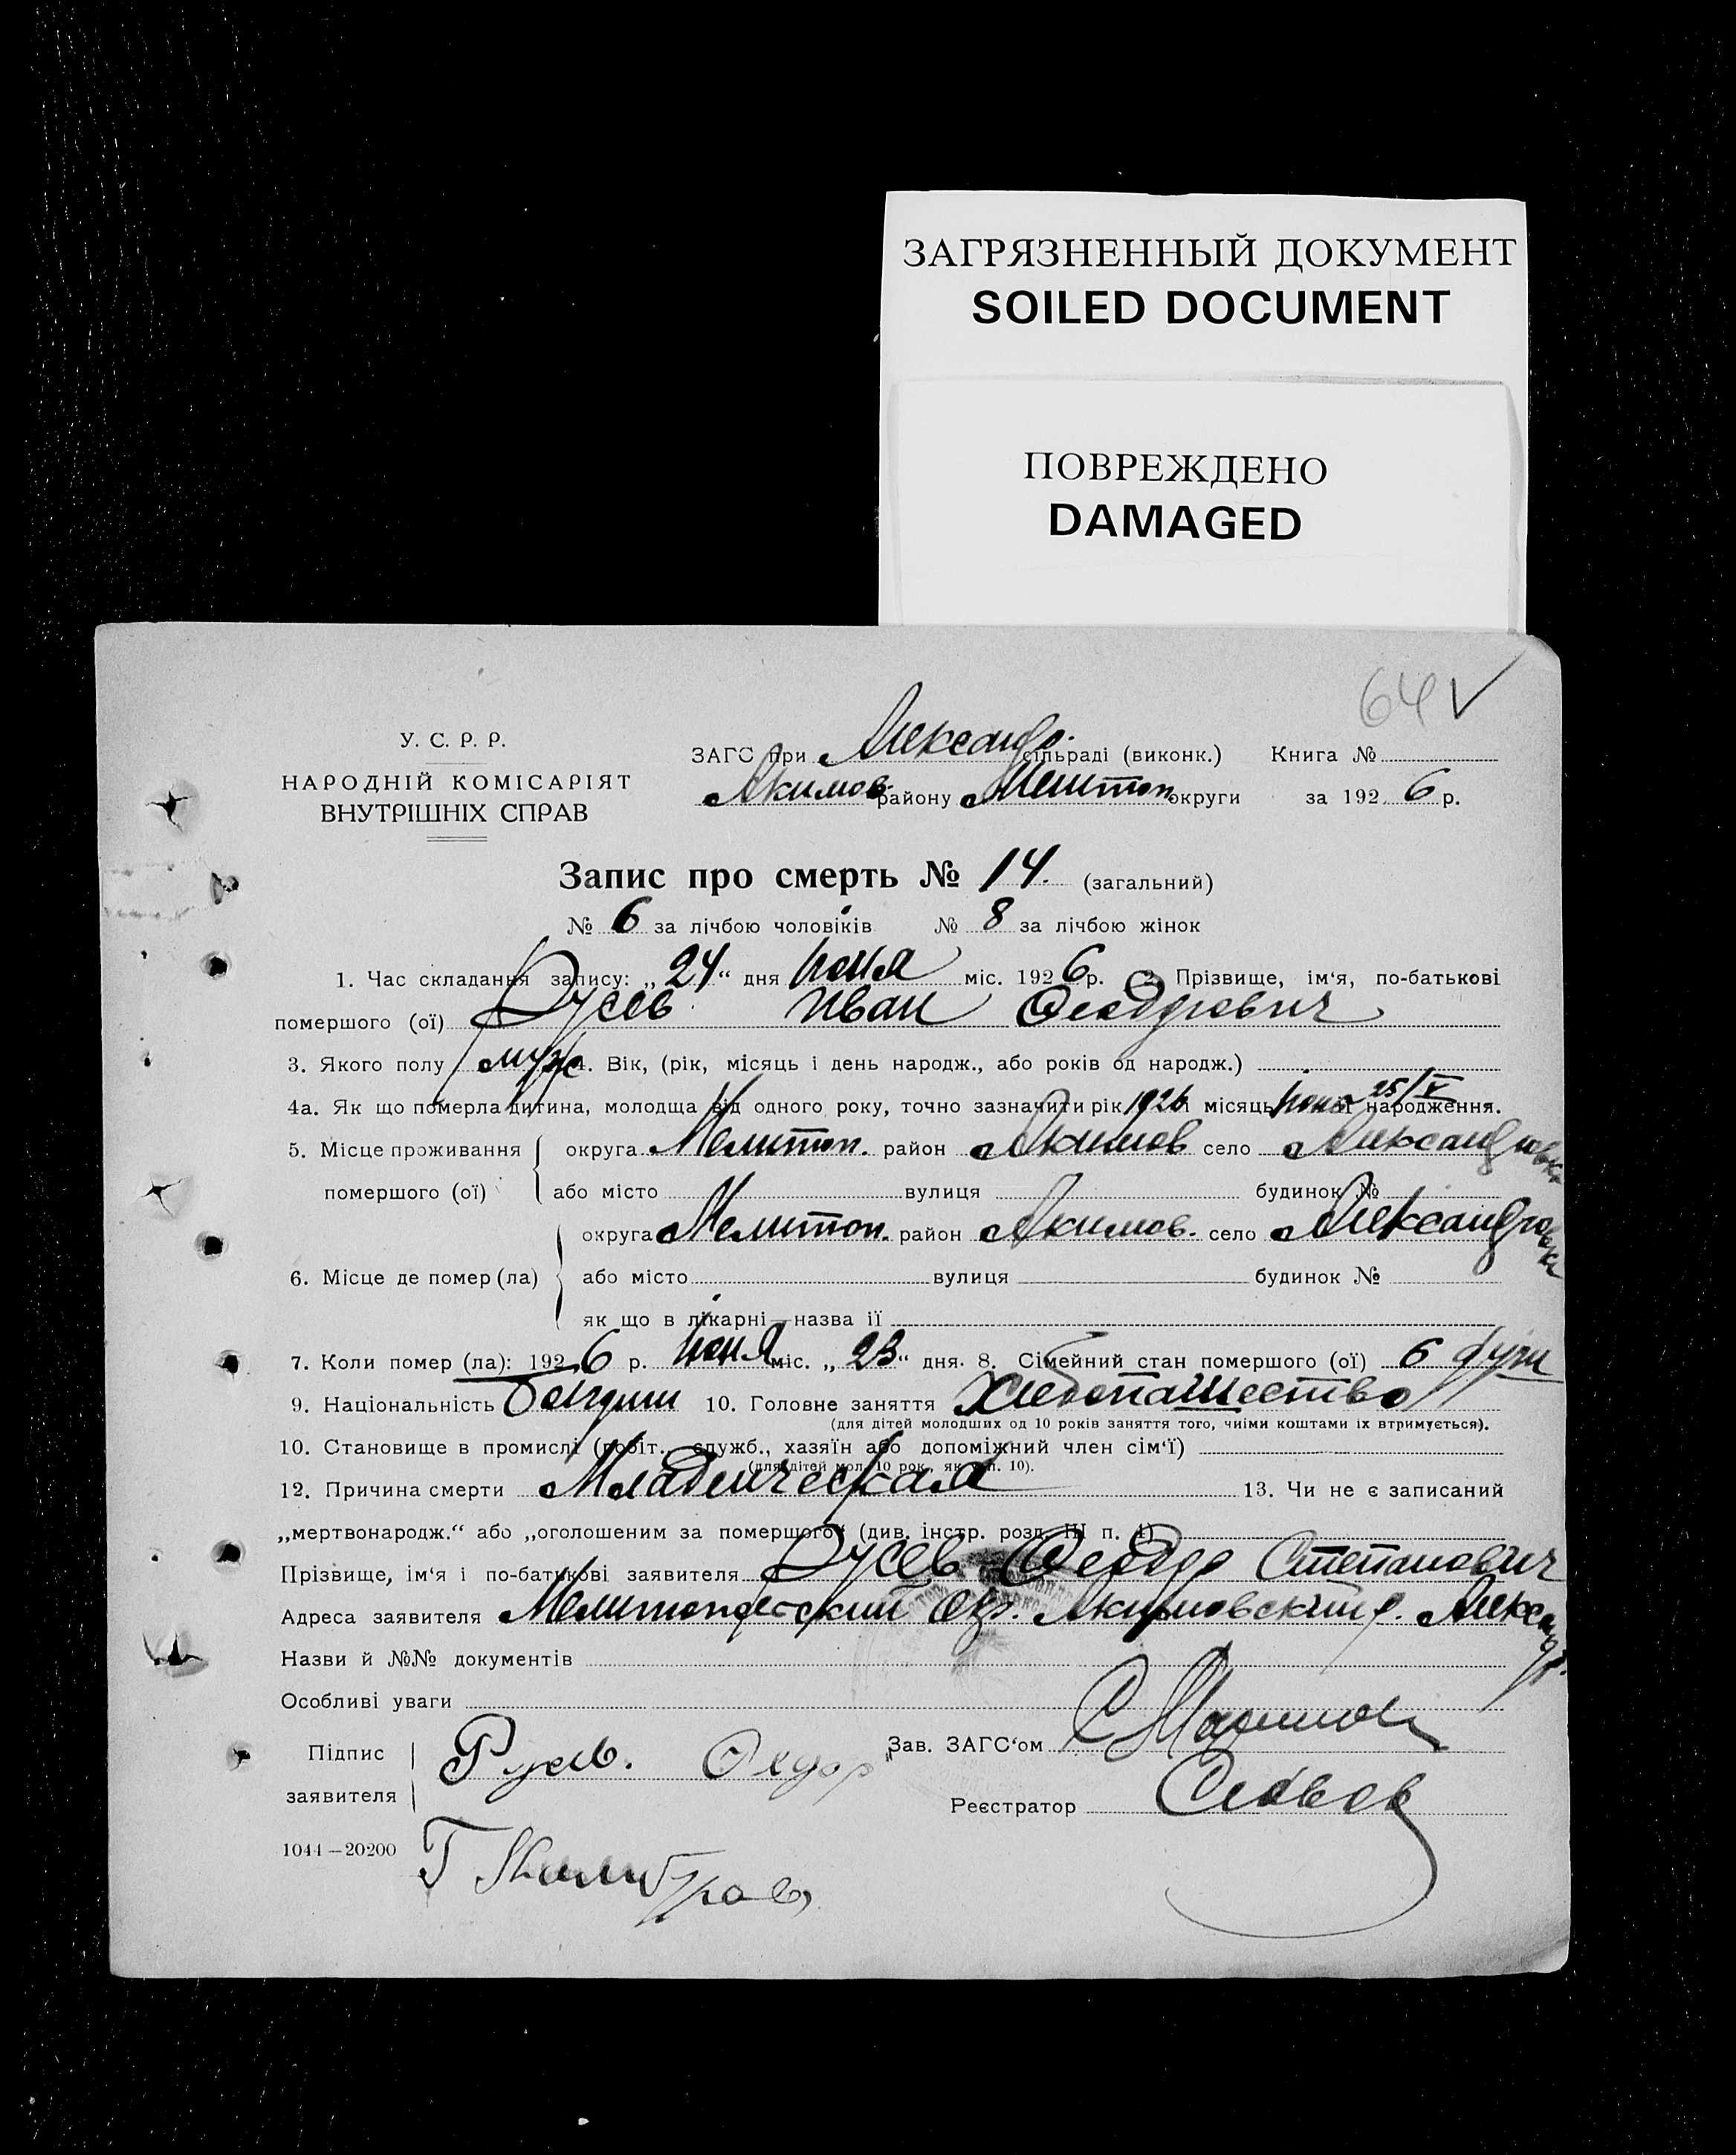 ЗАГРЯЗНЕННЫЙ ДОКУМЕНТ
SOILED DOCUMENT
ПОВРЕЖДЕНО
DAMAGED
64 V
У. С. Р. Р.
НАРОДНІЙ КОМІСАРІЯТ
ВНУТРІШНІХ СПРАВ
ЗАГС при Александр. сільраді (виконк.) Книга №
Акимов району Мелитоп округи за 1926 р.
Запис про смерть № 14. (загальний)
№ 6 за лічбою чоловіків № 8 за лічбою жінок
1. Час складання запису: „24“ дня июня міс. 1926 р. 2. Прізвище, ім'я, по-батькові
помершого (ої) Русев Иван Феодрович
3. Якого полу муж 4. Вік, (рік, місяць і день народж., або років од народж.)
4а. Як що померла дитина, молодша від одного року, точно зазначити рік 1926 місяць 25/V народження.
5. Місце проживання округа Мелитоп. район Акимов село Александровка
помершого (ої) або місто вулиця будинок №
округа Мелитоп. район Акимов. село Александровка
6. Місце де помер (ла) або місто вулиця будинок №
як що в лікарні—назва її
7. Коли помер (ла): 1926 р. июня міс. „23“ дня. 8. Сімейний стан помершого (ої) 6 душ
9. Національність 10. Головне заняття Хлебопашество
(для дітей молодших од 10 років заняття того, чиїми коштами їх втримується).
10. Становище в промислі (робіт., служб., хазяїн або допоміжний член сім'ї)
(для дітей мол. 10 рок., як в п. 10).
12. Причина смерти Младенческая 13. Чи не є записаний
„мертвонародж.“ або „оголошеним за помершого“ (див. інстр. розд. III п. 4)
Прізвище, ім'я і по-батькові заявителя Русев Феодр Степанович
Адреса заявителя Мелитопольский Окр. Акимовский р. Александр.
Назви й №№ документів
Особливі уваги
Підпис заявителя Русев. Федор
Зав. ЗАГС'ом
Реєстратор
1044—20200